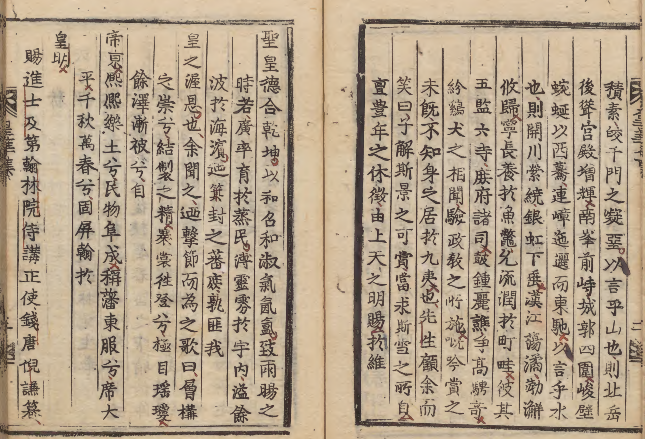 積素皎千門之凝堊以言乎山也則北岳
後聳宮殿增輝南峯前峙城郭四圍峻壁
蜿蜒以西騖連嶂迤邐而東馳以言乎水
也則開川縈繞銀虹下垂漢江湯潏渤澥
攸歸寧長養於魚鼈允流潤於町畦彼其
五監六寺庶府諸司鼓鍾麗譙爭高騁奇
紛鷄犬之相聞驗政敎之所施吟賞之
未旣不知身之居於九夷也先生顧余而
笑曰子解斯景之可賞當求斯雪之所自
亶豊年之休徵由上天之明賜於維
聖皇德合乾坤以和召和淑氣氤氳致雨暘之
時若廣卒育於蒸民溥靈雰於宇內溢餘
波於海濱迤箕封之蕃庶孰匪我
皇之渥恩也余聞之迺擊節而為之歌曰層構
之崇兮結製之精褰裳徃登兮極目瑶瓊
餘澤漸被兮自
帝京熈熈樂土兮民物阜成稱藩東服兮席大
平千秋萬春兮固屏翰於
皇明
賜進士及第翰林院侍講正使錢唐倪謙纂
皇華集